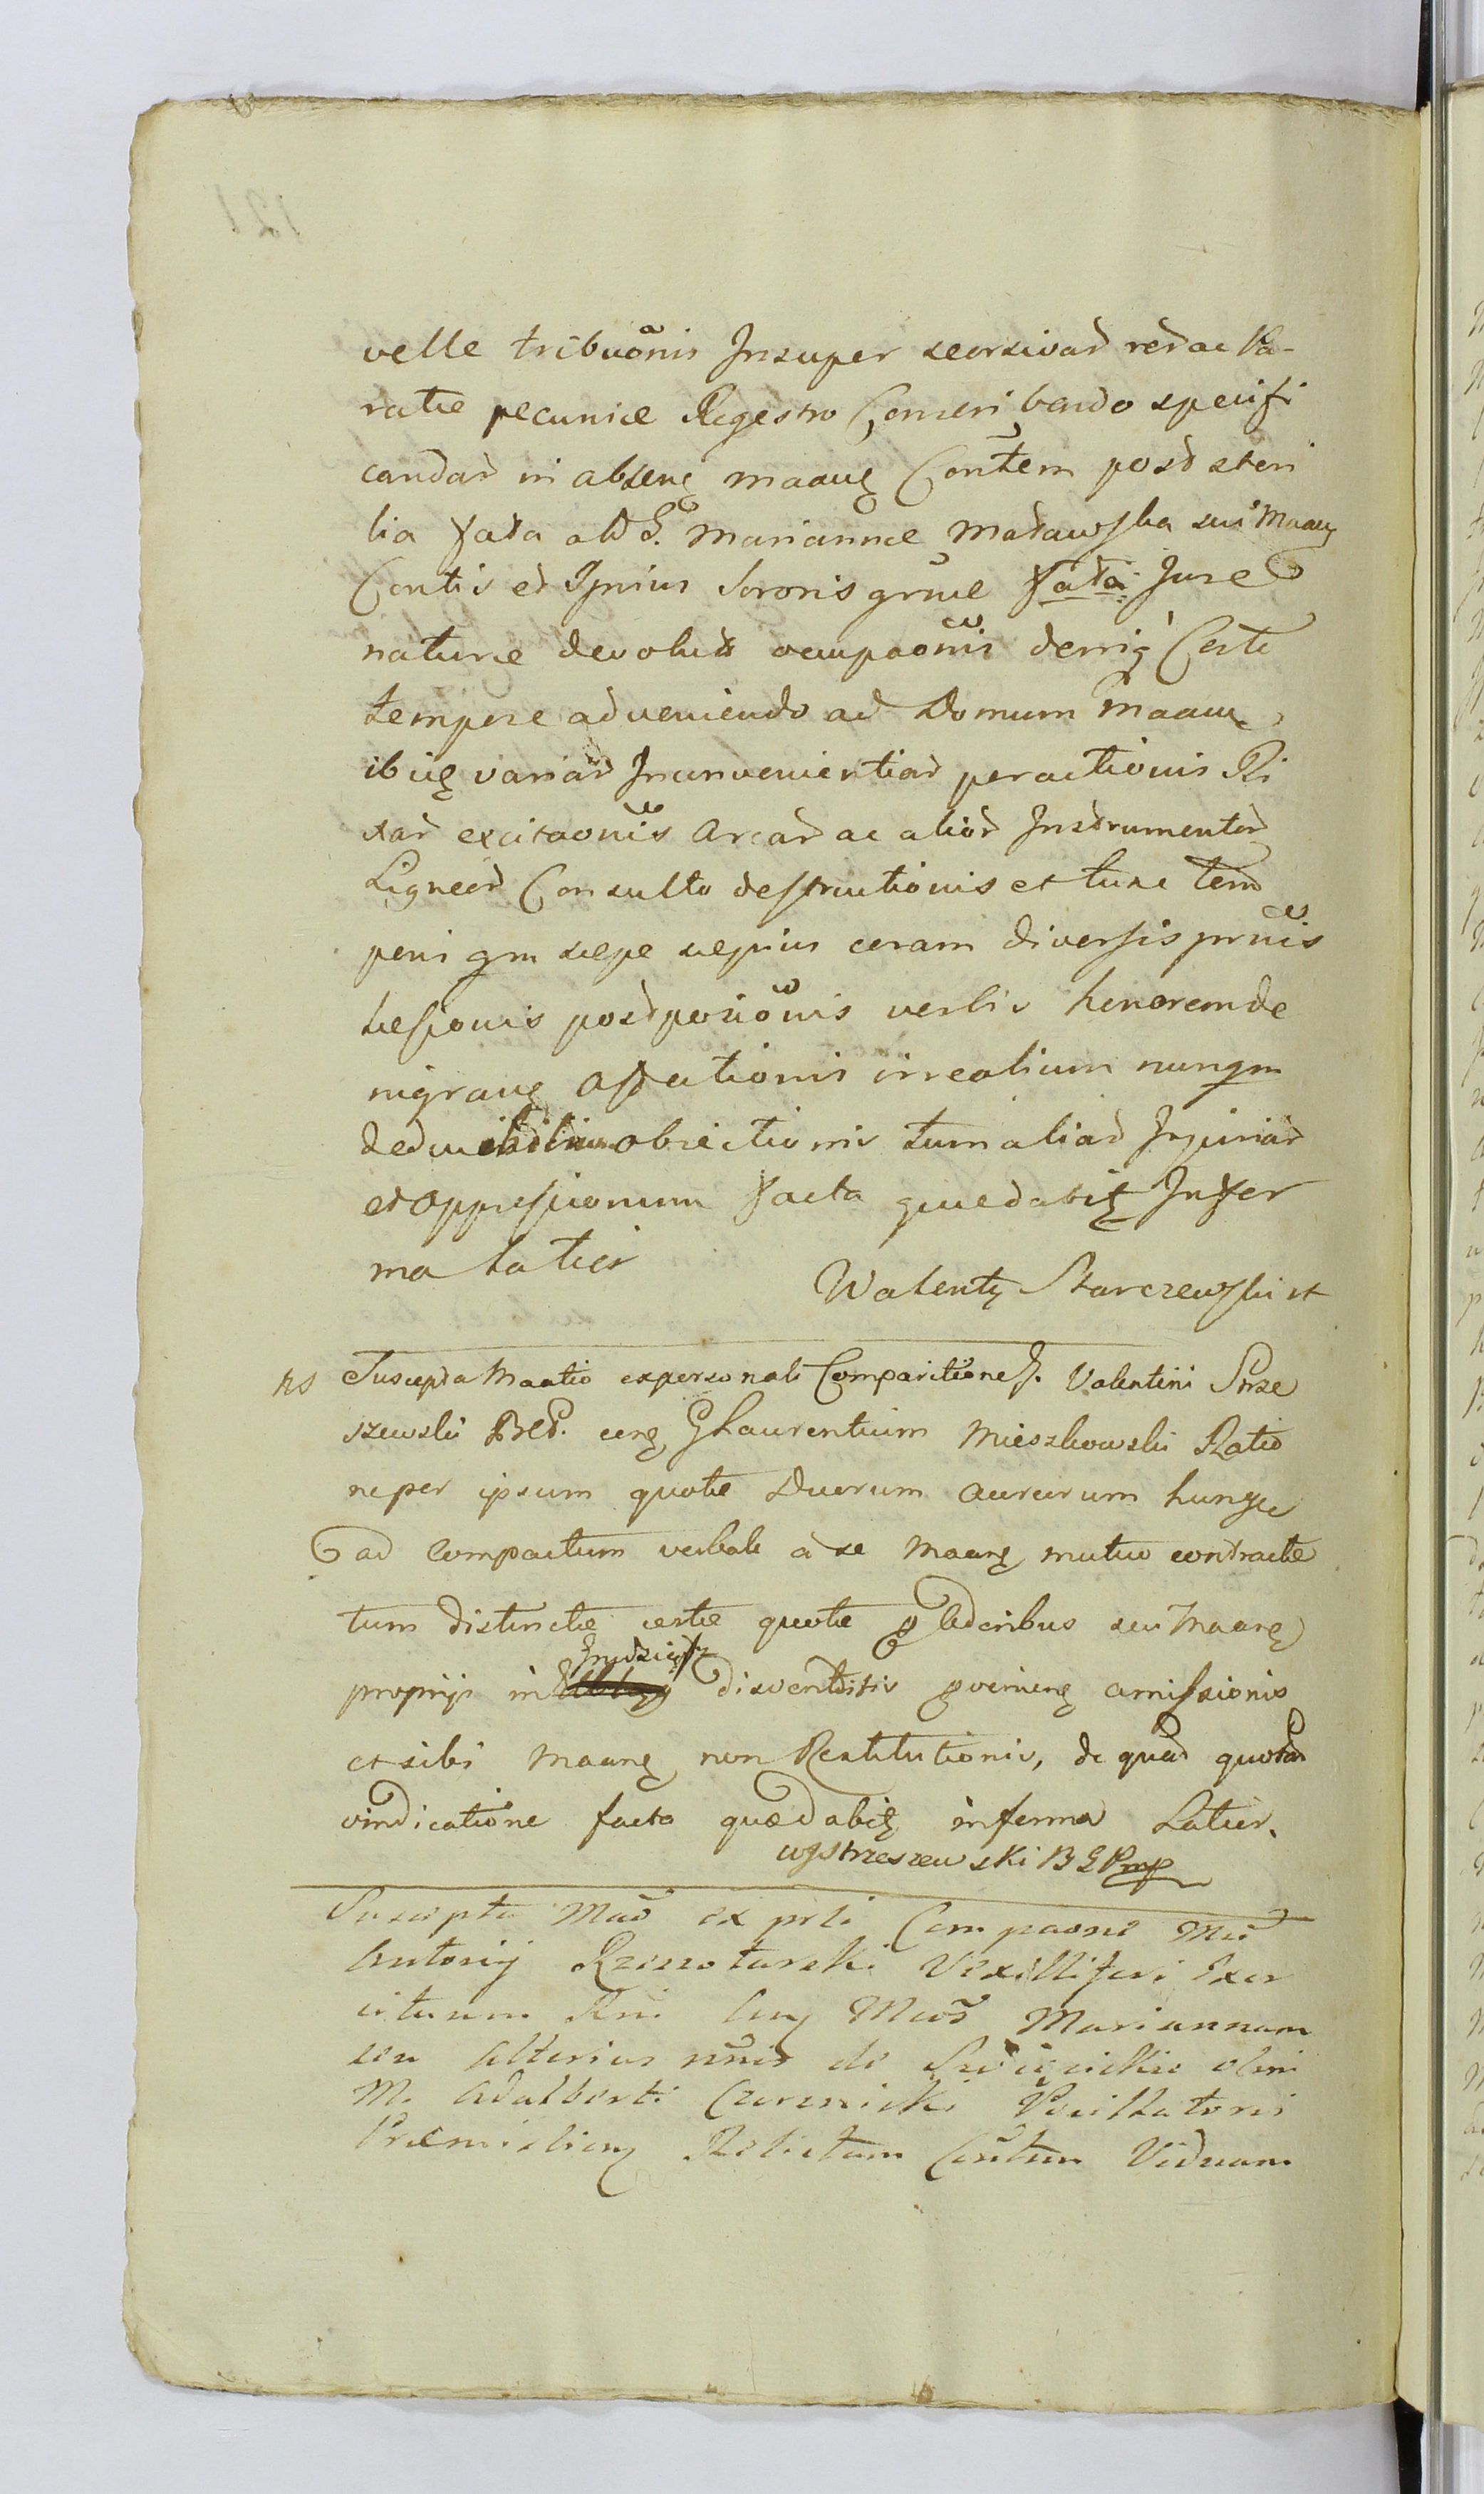 velle tribuōnis Insuper seorsivad redac Pa-
ratæ pecuniæ Regestro Conseribendo specifi
candad in absenę maanę Contem post steri
lia fata olÞ G. Mariannæ Madawska sui Maanę
Contis et Ipsius Sororis grnæ fata Jure
naturæ devolut ocupaonis deniq Certo
tempore adveniendo ad Domum Maanę
ibiię variad Inconvenientiad peractionis Ri
xad excitaonis Arcad ac aliod Instrumentod
Ligneod Consulto destructionis et tunc tem
peris qm sæpe sæpius coram diversis prnis
læsionis postposiōnis verbis honorem de
nigranę affectionis irrealium nunqm
deducibilium obiectionis tum aliad Injuriad
et Oppressionum facta quædabiţ Infer
ma latius
Walenty Starczewski st
NS Suscepta Maatio ex personali Comparitione G. Valentini Strze
szewski BGP. cenę G Laurentium Mieszkowski Ratio
ne per ipsum quotæ Duorum aureorum hungæ
ad compactum verbale à se Maanę mutuo contractæ
tum distinctæ certæ quotæ p laboribus seu Maanę
proprijs in disvenditis pvenienę amissionis
et sibi Maanę non Restitutionis, de quad quotad
vindicatione facta quædabiţ inferma Latius.
WJStrzeszewski BGPmp
Suscepta Mao ex prli Compaone Mci
Antonij Rzeszotarski Vexilliferi Exer
cituum Rni Cnę Mcos Mariannam
seu alterius nnis de Swięcickie olim
M. Adalberti Czernicki Pocillatoris
Præmisliens Relictam Contem Viduam